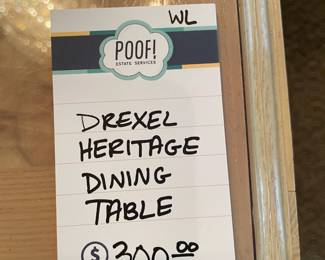 WL
POOF!
ESTATE SERVICES
DREXEL
HERITAGE
DINING
TABLE
$ 300.00